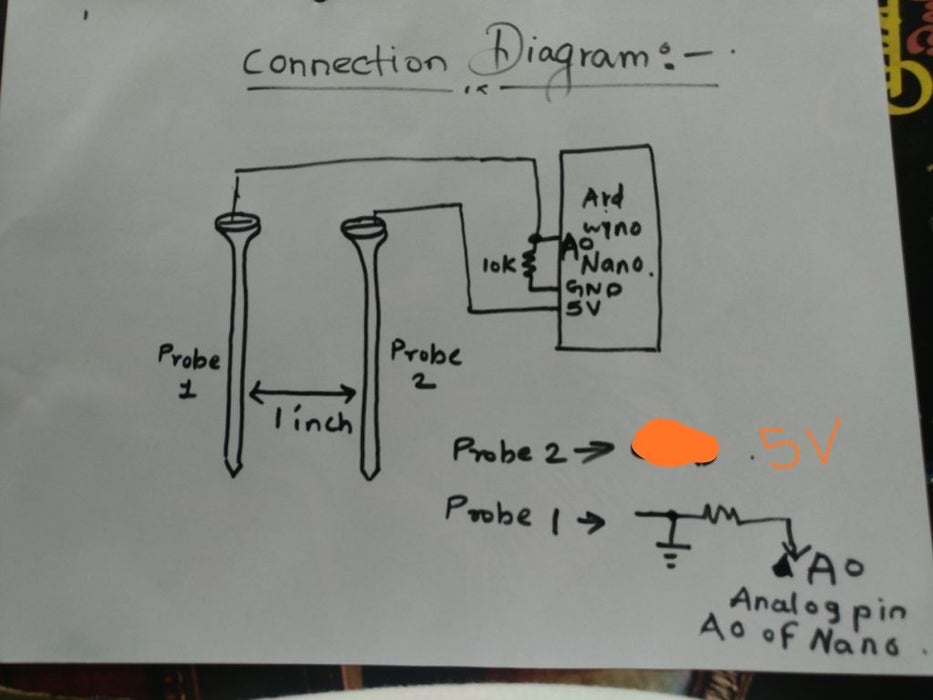 Connection Diagram:-
Ard
wyno
A0
Nano.
10K
GND
5V
Probe
1
Probe
2
1 inch
Probe 2 → . 5V
Probe 1 →
A0
Analog pin
A0 of Nano.